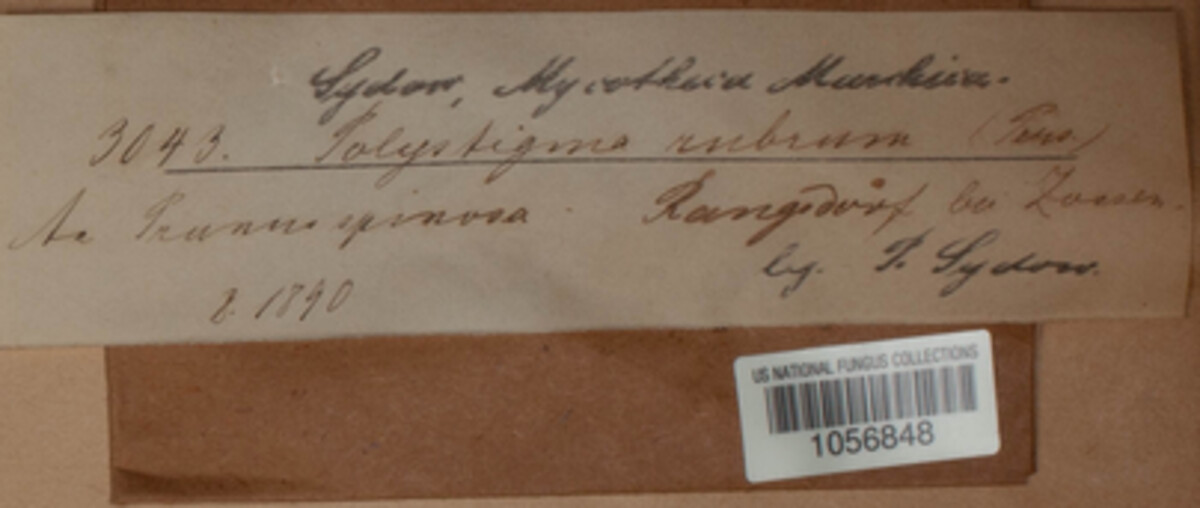 Sydow, Mycotheca Marchica.
3043. Polystigma rubrum (Pers.)
An Prunus spinosa. Rangsdorf bei Zossen.
leg. P. Sydow.
8. 1890
US NATIONAL FUNGUS COLLECTIONS
1056848